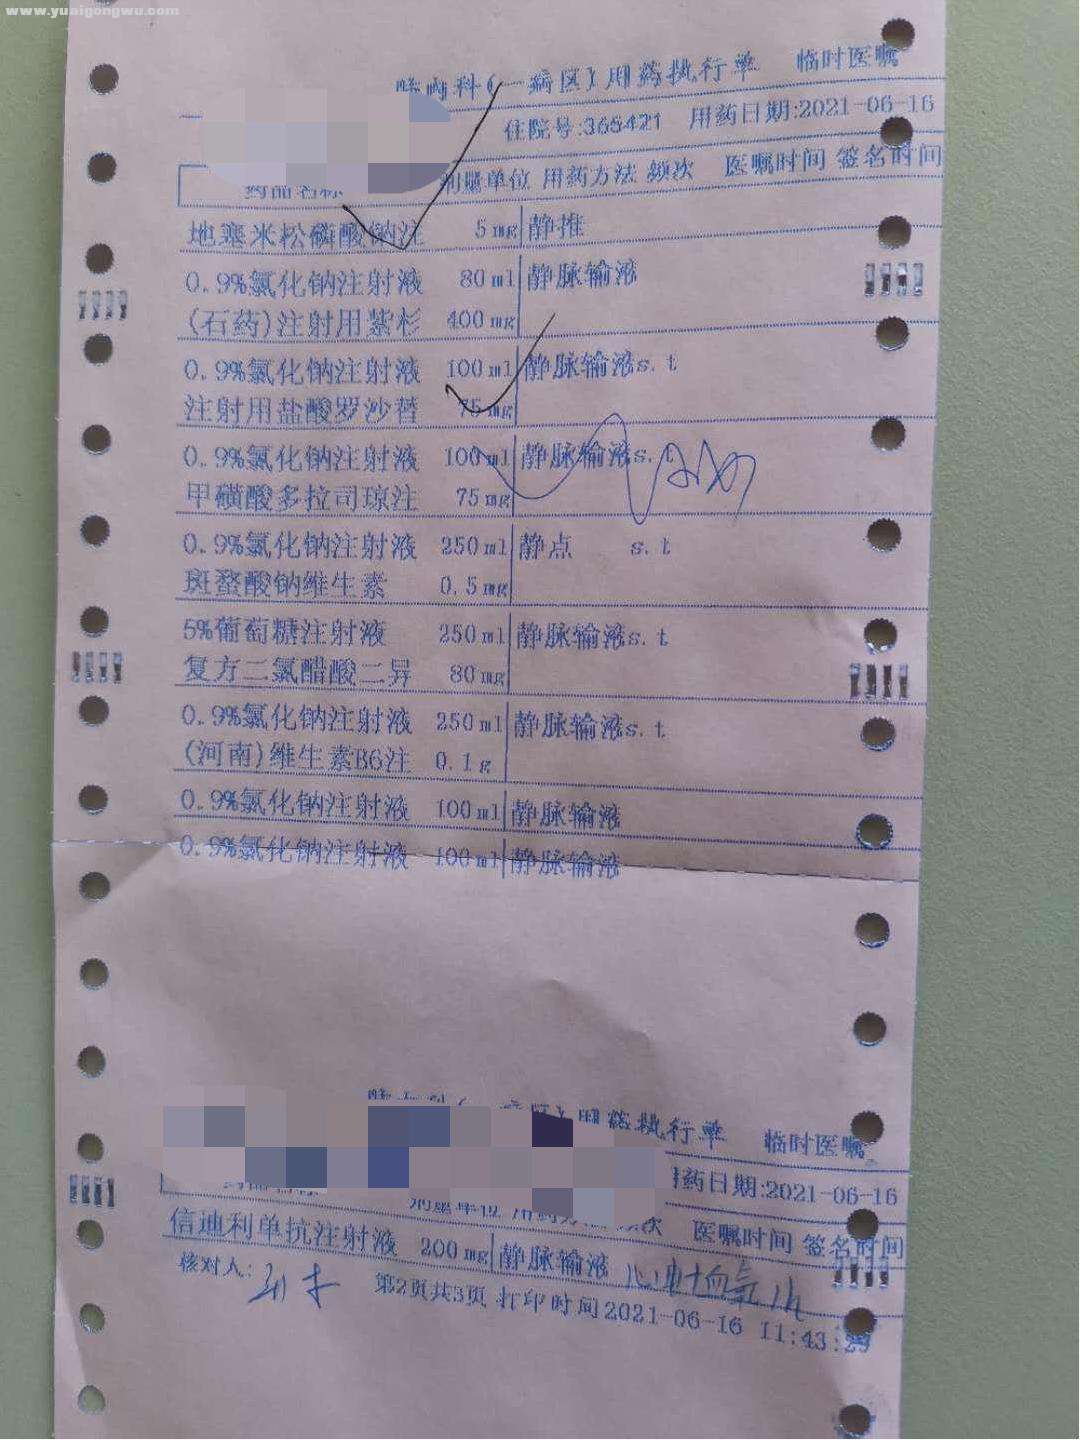 www.yuaigongwu.com
呼内科(一病区)用药执行单 临时医嘱
住院号:365421 用药日期:2021-06-16
药品名称 剂量单位 用药方法 频次 医嘱时间 签名时间
地塞米松磷酸钠注 5mg 静推
0.9%氯化钠注射液 80ml 静脉输液
(石药)注射用紫杉 400mg
0.9%氯化钠注射液 100ml 静脉输液s.t
注射用盐酸罗沙替 75mg
0.9%氯化钠注射液 100ml 静脉输液s.t
甲磺酸多拉司琼注 75mg
0.9%氯化钠注射液 250ml 静点 s.t
斑蝥酸钠维生素 0.5mg
5%葡萄糖注射液 250ml 静脉输液s.t
复方二氯醋酸二异 80mg
0.9%氯化钠注射液 250ml 静脉输液s.t
(河南)维生素B6注 0.1g
0.9%氯化钠注射液 100ml 静脉输液
0.9%氯化钠注射液 100ml 静脉输液
用药执行单 临时医嘱
用药日期:2021-06-16
药品名称 剂量单位 用药方法 频次 医嘱时间 签名时间
信迪利单抗注射液 200mg 静脉输液 心电血氧
核对人: 第2页共3页 打印时间2021-06-16 11:43:29